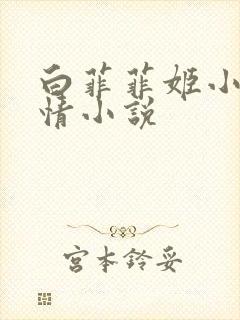 白菲菲姬小
情小説
宮本鈴妥